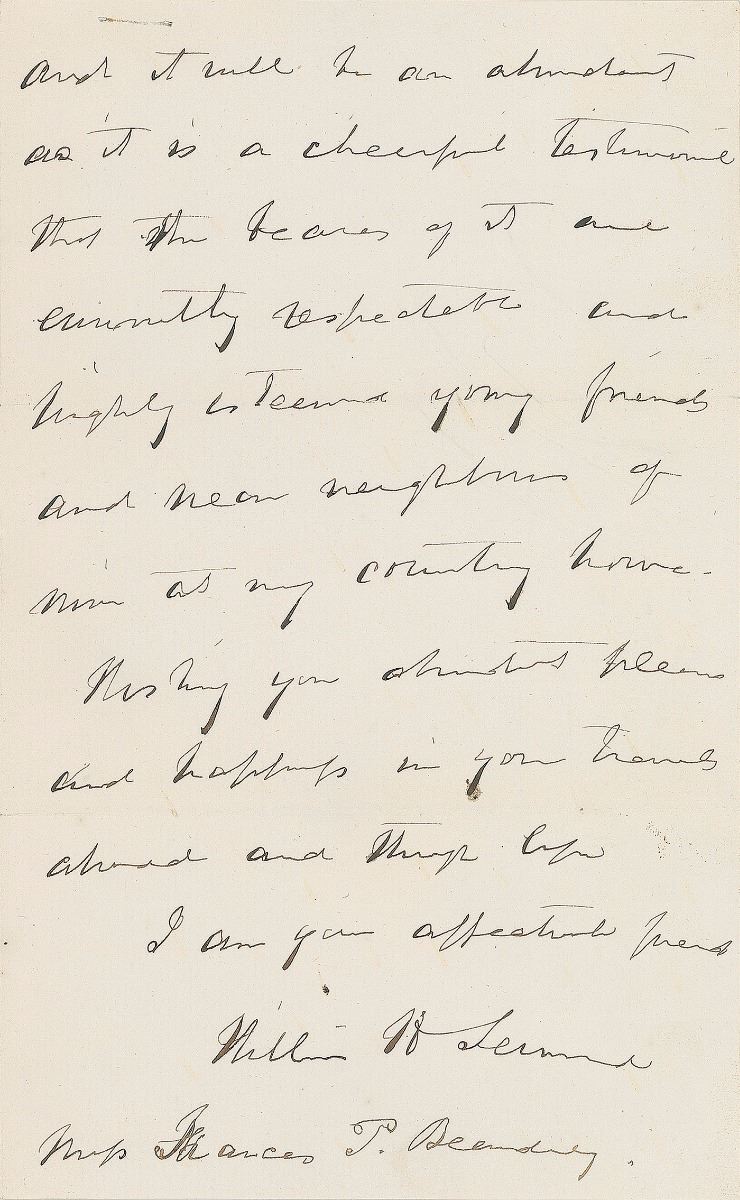 and it will be an abundant
as it is a cheerful testimonial
that the bearer of it are
eminently respectable and
highly esteemed young friends
and near neighbours of
mine at my country home.
Wishing you abundant pleasure
and happiness in your travels
abroad and through life
I am your affectionate friend
William H Seward
Miss Frances P.